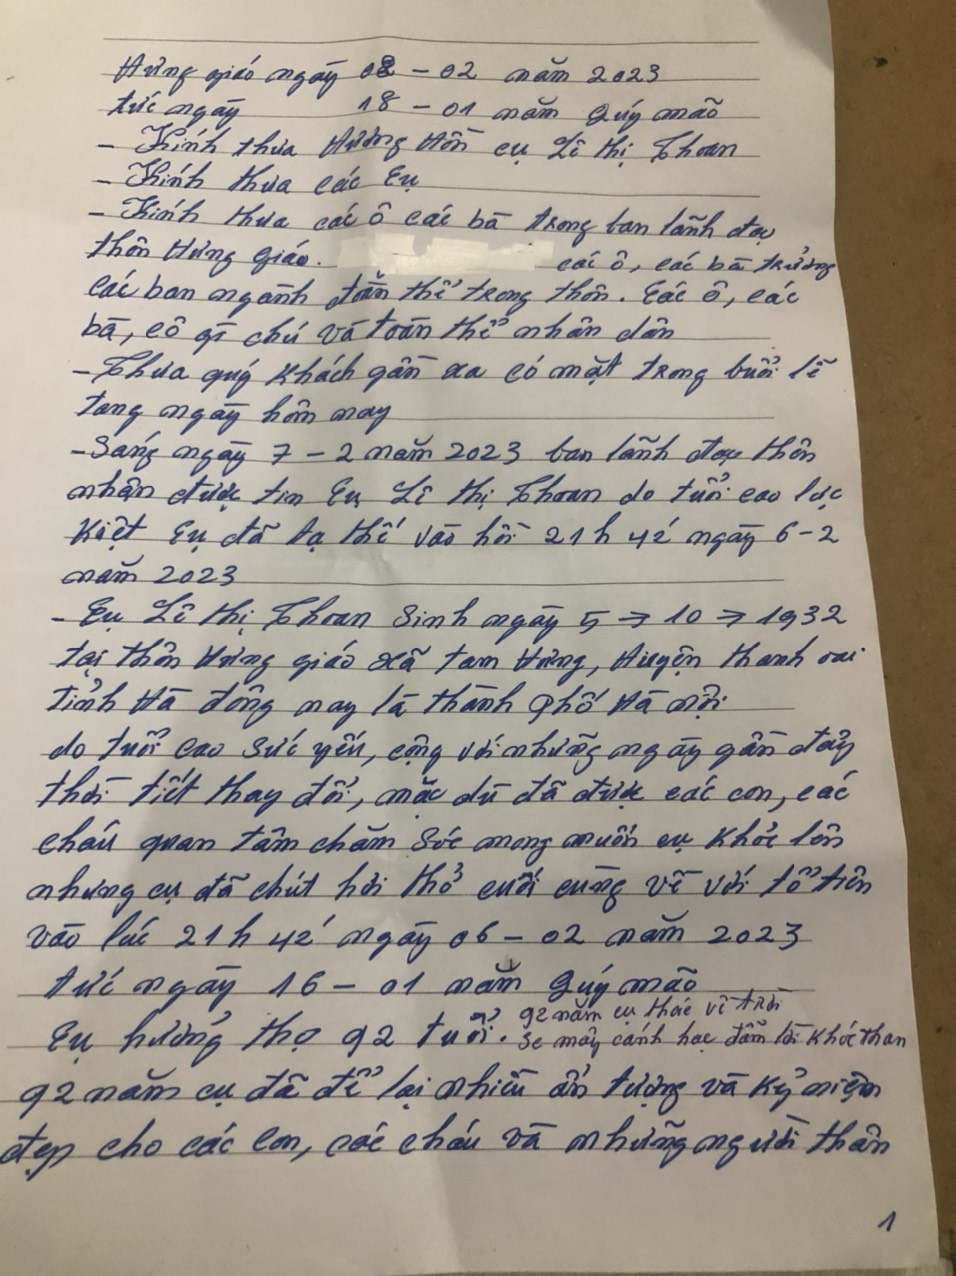 Hưng giáo ngày 08 - 02 năm 2023
tức ngày 18 - 01 năm Quý mão
- Kính thưa Hương Hồn cụ Lê Thị Thoan
- Kính thưa các Cụ
- Kính thưa các ô các bà trong ban lãnh đạo
thôn Hưng giáo. các ô, các bà trưởng
các ban ngành đoàn thể trong thôn. Các ô, các
bà, cô gì chú và toàn thể nhân dân
- Thưa quý khách gần xa có mặt trong buổi lễ
tang ngày hôm nay
- Sáng ngày 7 - 2 năm 2023 ban lãnh đạo thôn
nhận được tin Cụ Lê Thị Thoan do tuổi cao lực
kiệt Cụ đã tạ thế vào hồi 21h 42' ngày 6-2
năm 2023
- Cụ Lê Thị Thoan Sinh ngày 5 → 10 → 1932
tại thôn Hưng giáo xã tam Hưng, Huyện thanh oai
tỉnh Hà đông nay là thành phố Hà nội
do tuổi cao sức yếu, cộng với những ngày gần đây
thời tiết thay đổi, mặc dù đã được các con, các
cháu quan tâm chăm sóc mong muốn cụ khỏe lên
nhưng cụ đã chút hơi thở cuối cùng về với tổ tiên
vào lúc 21h 42' ngày 06 - 02 năm 2023
tức ngày 16 - 01 năm Quý mão
92 năm cụ thác về trời
Cụ hưởng thọ 92 tuổi. Se mây cánh hạc đẫm lời khóc than
92 năm cụ đã để lại nhiều ấn tượng và kỷ niệm
đẹp cho các con, các cháu và những người thân
1